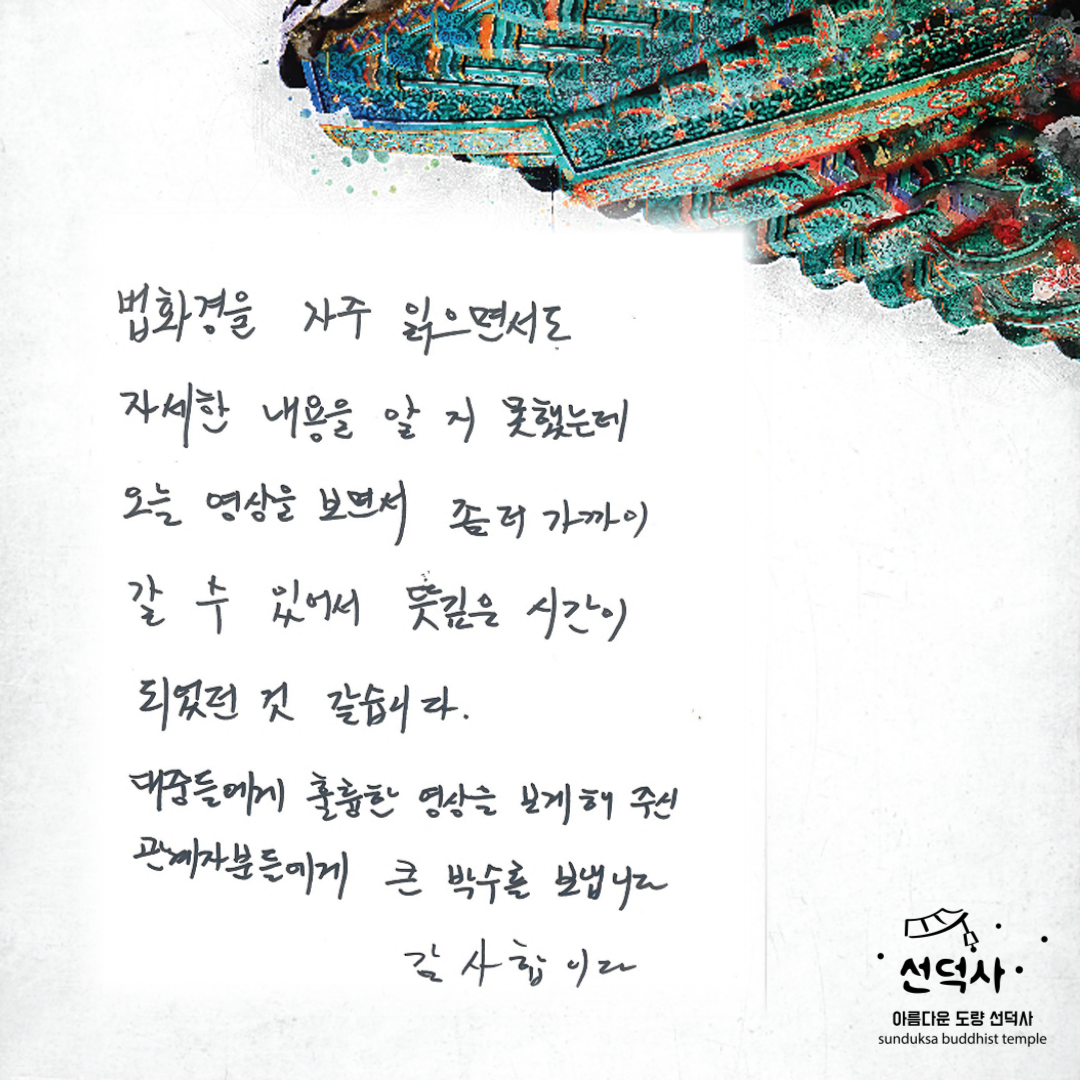 법화경을 자주 읽으면서도
자세한 내용을 알 지 못했는데
오늘 영상을 보면서 좀 더 가까이
갈 수 있어서 뜻깊은 시간이
되었던 것 같습니다.
대중들에게 훌륭한 영상을 보게 해 주신
관계자분들에게 큰 박수를 보냅니다
감사합니다
선덕사
아름다운 도량 선덕사
sunduksa buddhist temple